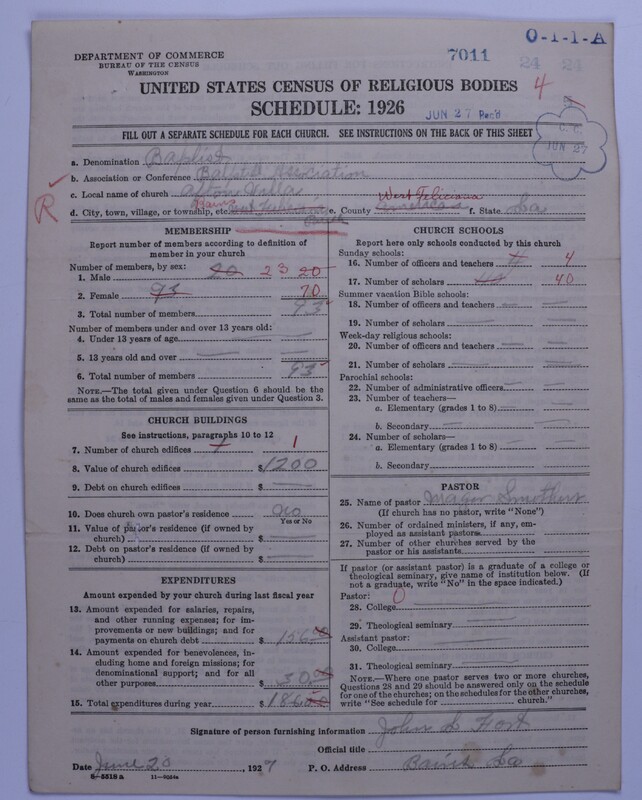 O-1-1-A
DEPARTMENT OF COMMERCE
BUREAU OF THE CENSUS
WASHINGTON
7011
24 24
UNITED STATES CENSUS OF RELIGIOUS BODIES
4
SCHEDULE: 1926
JUN 27 Rec'd
FILL OUT A SEPARATE SCHEDULE FOR EACH CHURCH. SEE INSTRUCTIONS ON THE BACK OF THIS SHEET
JUN 27
a. Denomination Baptist
b. Association or Conference Baptist Association
c. Local name of church Afton Villa
R
d. City, town, village, or township, etc. Bains e. County West Feliciana f. State La
MEMBERSHIP
Report number of members according to definition of member in your church
Number of members, by sex:
1. Male 20 23 20
2. Female 93 70
3. Total number of members 93
Number of members under and over 13 years old:
4. Under 13 years of age
5. 13 years old and over
6. Total number of members 93
NOTE.—The total given under Question 6 should be the same as the total of males and females given under Question 3.
CHURCH BUILDINGS
See instructions, paragraphs 10 to 12
7. Number of church edifices 1
8. Value of church edifices $1200
9. Debt on church edifices $
10. Does church own pastor's residence no
Yes or No
11. Value of pastor's residence (if owned by church) $
12. Debt on pastor's residence (if owned by church) $
EXPENDITURES
Amount expended by your church during last fiscal year
13. Amount expended for salaries, repairs, and other running expenses; for improvements or new buildings; and for payments on church debt $ 156.00
14. Amount expended for benevolences, including home and foreign missions; for denominational support; and for all other purposes $ 30.00
15. Total expenditures during year $ 186.00
CHURCH SCHOOLS
Report here only schools conducted by this church
Sunday schools:
16. Number of officers and teachers 4 4
17. Number of scholars 40 40
Summer vacation Bible schools:
18. Number of officers and teachers
19. Number of scholars
Week-day religious schools:
20. Number of officers and teachers
21. Number of scholars
Parochial schools:
22. Number of administrative officers
23. Number of teachers—
a. Elementary (grades 1 to 8)
b. Secondary
24. Number of scholars—
a. Elementary (grades 1 to 8)
b. Secondary
PASTOR
25. Name of pastor Major Smothers
(If church has no pastor, write "None")
26. Number of ordained ministers, if any, employed as assistant pastors
27. Number of other churches served by the pastor or his assistants
If pastor (or assistant pastor) is a graduate of a college or theological seminary, give name of institution below. (If not a graduate, write "No" in the space indicated.)
Pastor: 0
28. College
29. Theological seminary
Assistant pastor:
30. College
31. Theological seminary
NOTE.—Where one pastor serves two or more churches, Questions 28 and 29 should be answered only on the schedule for one of the churches; on the schedules for the other churches, write "See schedule for church."
Signature of person furnishing information John S Fort
Official title
Date June 20, 1927 P. O. Address Bains La
8-5518a 11-9064a